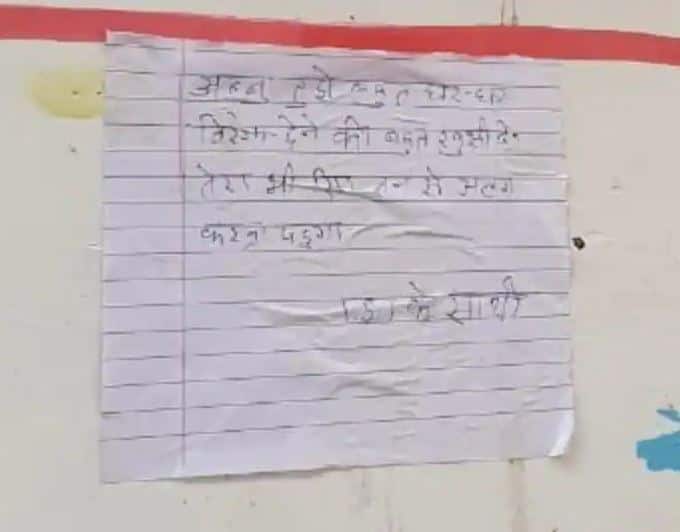 तुझे बहुत घर-घर
तिरंगा देने की बहुत खुशी है
तेरा भी सिर तन से अलग
करना पड़ेगा
के साथी